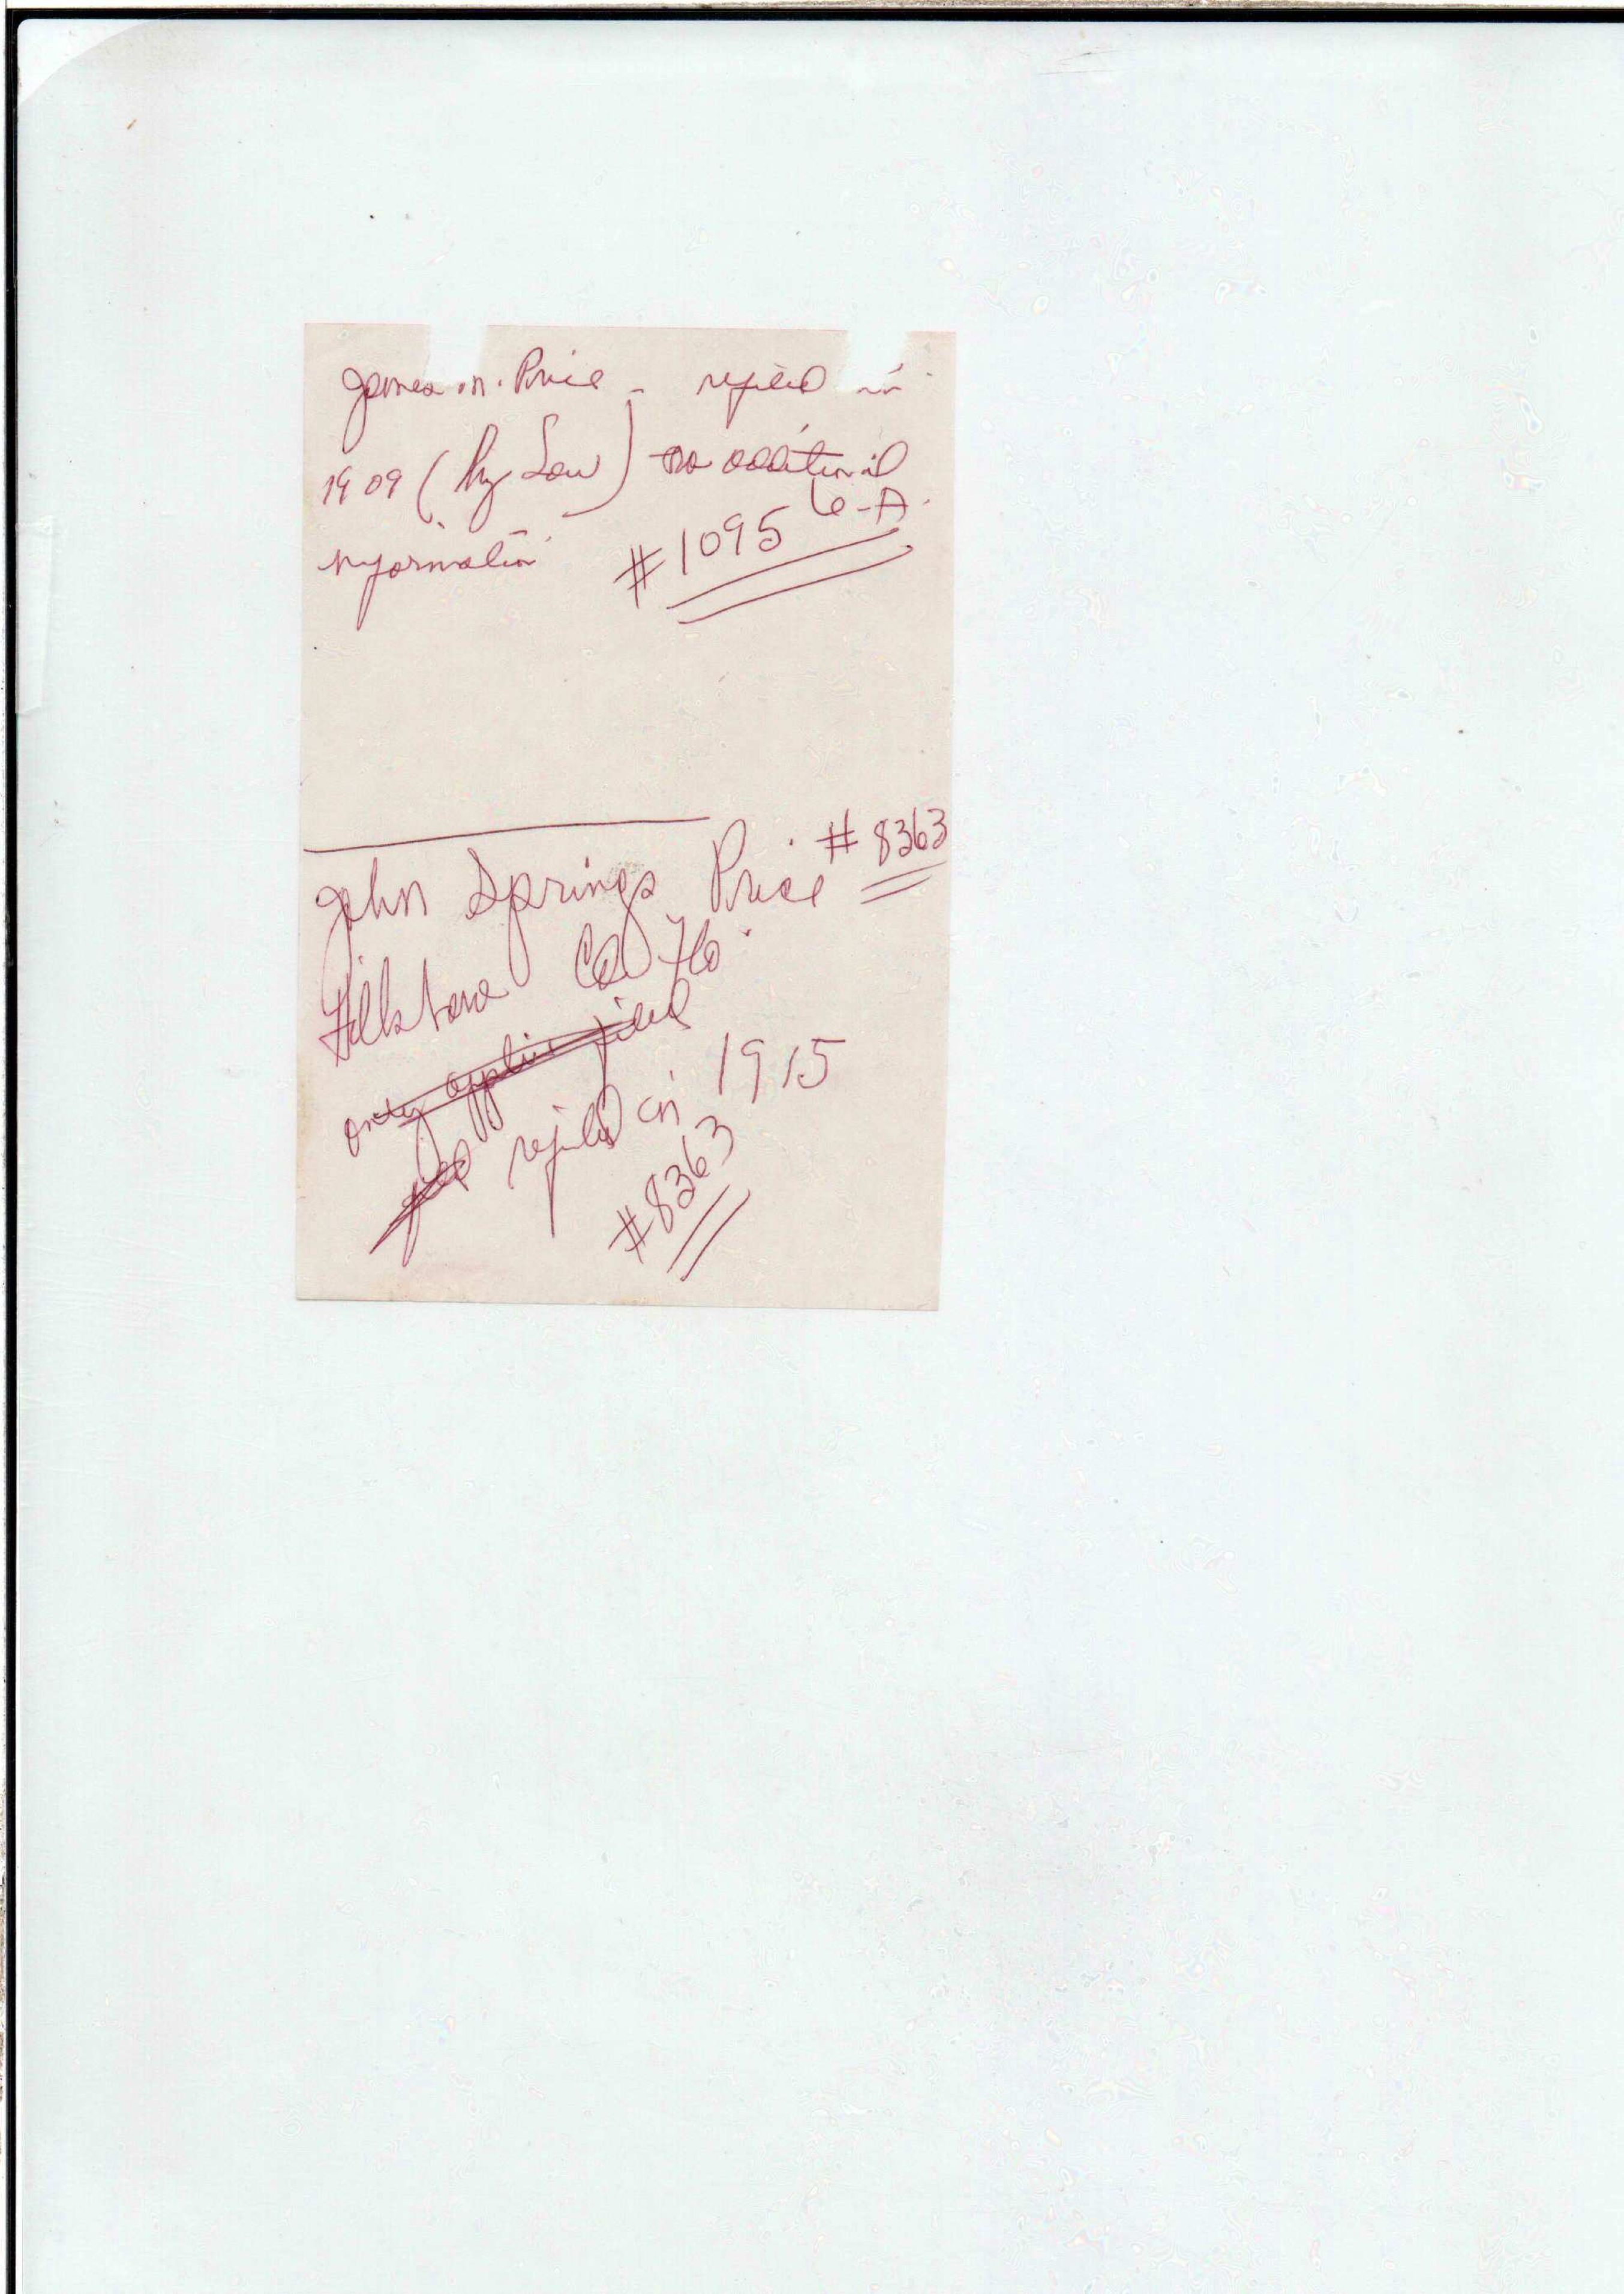 James M. Price - rejected in
1909 (by Law) no additional
6-A.
information #1095
John Springs Price #8363
Hillsboro Co Flo.
only applic filed
filed rejected in 1915
#8363